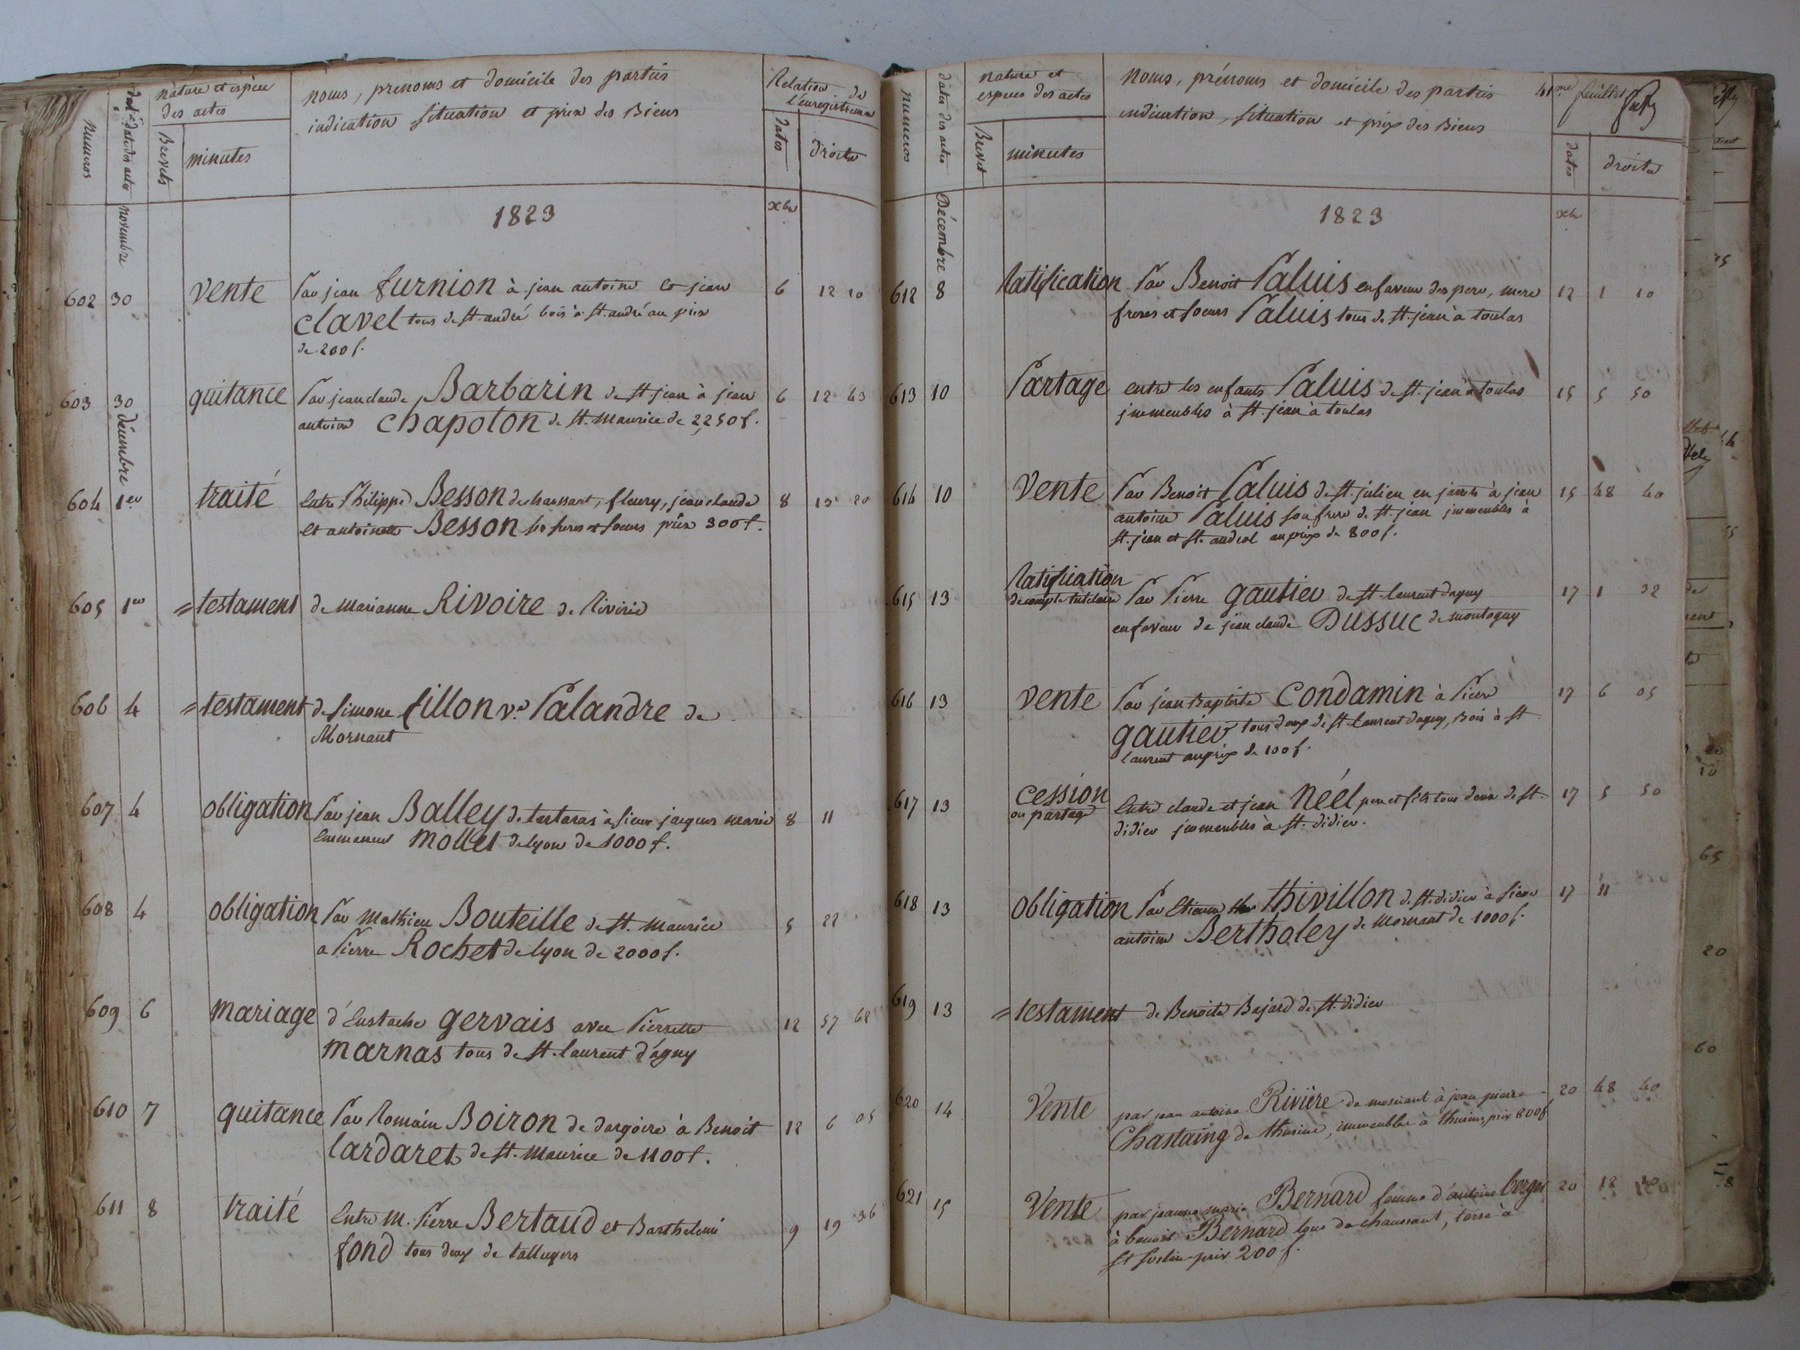 numeros
dates des actes
nature et espèce
des actes
Brevets
minutes
noms, prenoms et domicile des parties
indication situation et prix des Biens
Relation de
l'enregistrement
dates
droits
novembre
1823
xbre
602 30 vente Par jean furnion à jean antoine et jean 6 12 10
clavel tous de St. andré bois à St. andré au prix
de 200 f.
603 30 quitance Par jean claude Barbarin de St. jean à jean 6 12 63
antoine chapoton de St. Maurice de 2,250 f.
décembre
604 1er traité Entre Philippe Besson de chaussant, fleury, jean claude 8
et antoinette Besson ses freres et soeurs prix 300 f.
605 1er = testament de Marianne Rivoire de Riverie
606 4 = testament de Simone fillon ve Palandre de
Mornant
607 4 obligation Par jean Balley de tartaras à Sieur jacques marie 8 11
Emmanuel Mollet de lyon de 1000 f.
608 4 obligation Par Mathieu Bouteille de St. Maurice 5 22
a Pierre Rochet de lyon de 2000 f.
609 6 Mariage d'Eustache gervais avec Pierrette 12 57 62
Marnas tous de St. laurent d'agny
610 7 quitance Par Romain Boiron de dargoire à Benoit 12 6 05
lardaret de St. Maurice de 1100 f.
611 8 traité Entre M. Pierre Bertaud et Barthelemi 9 19 36
fond tous deux de talluyers
numeros
dates des actes
nature et
especes des actes
Brevet
minutes
Noms, prénoms et domicile des parties
indication, situation et prix des Biens
41me feuillet
dates
droits
Décembre
1823
xbre
612 8 Ratification Par Benoit Paluis en faveur des pere, mere 12 1 10
freres et soeurs Paluis tous de St. jean à toulas
613 10 Partage entre les enfants Paluis de St. jean à toulas 15 5 50
immeubles à St. jean à toulas
614 10 Vente Par Benoit Paluis de St. julien en jarets à jean 15 48 40
antoine Paluis son frere de St. jean immeubles à
St. jean et St. andeol au prix de 800 f.
615 13 Ratification
de compte tutelaire Par Pierre gautier de St. laurent dagny 17 1 32
en faveur de jean claude Dussuc de montagny
616 13 vente Par jean Baptiste Condamin à Pierre 17 6 05
gautier tous deux de St. laurent dagny, Bois à St.
laurent au prix de 100 f.
617 13 cession
ou partage Entre claude et jean Néél pere et fils tous deux de St. 17 5 50
didier immeubles à St. didier.
618 13 obligation Par Etienne thivillon de St. didier à Pierre 17 11
antoine Bertholey de Mornant de 1000 f.
619 13 = testament de Benoite Bajard de St. didier
620 14 Vente par jean antoine Rivière de mornant à jean pierre 20 48 40
Chastaing de thurins, immeubles à thurins, prix 800 f
621 15 Vente par jeanne marie Bernard femme d'antoine berger 20 12 10
à benoit Bernard tous de chaussant, terre à
St Sorlin prix 200 f.